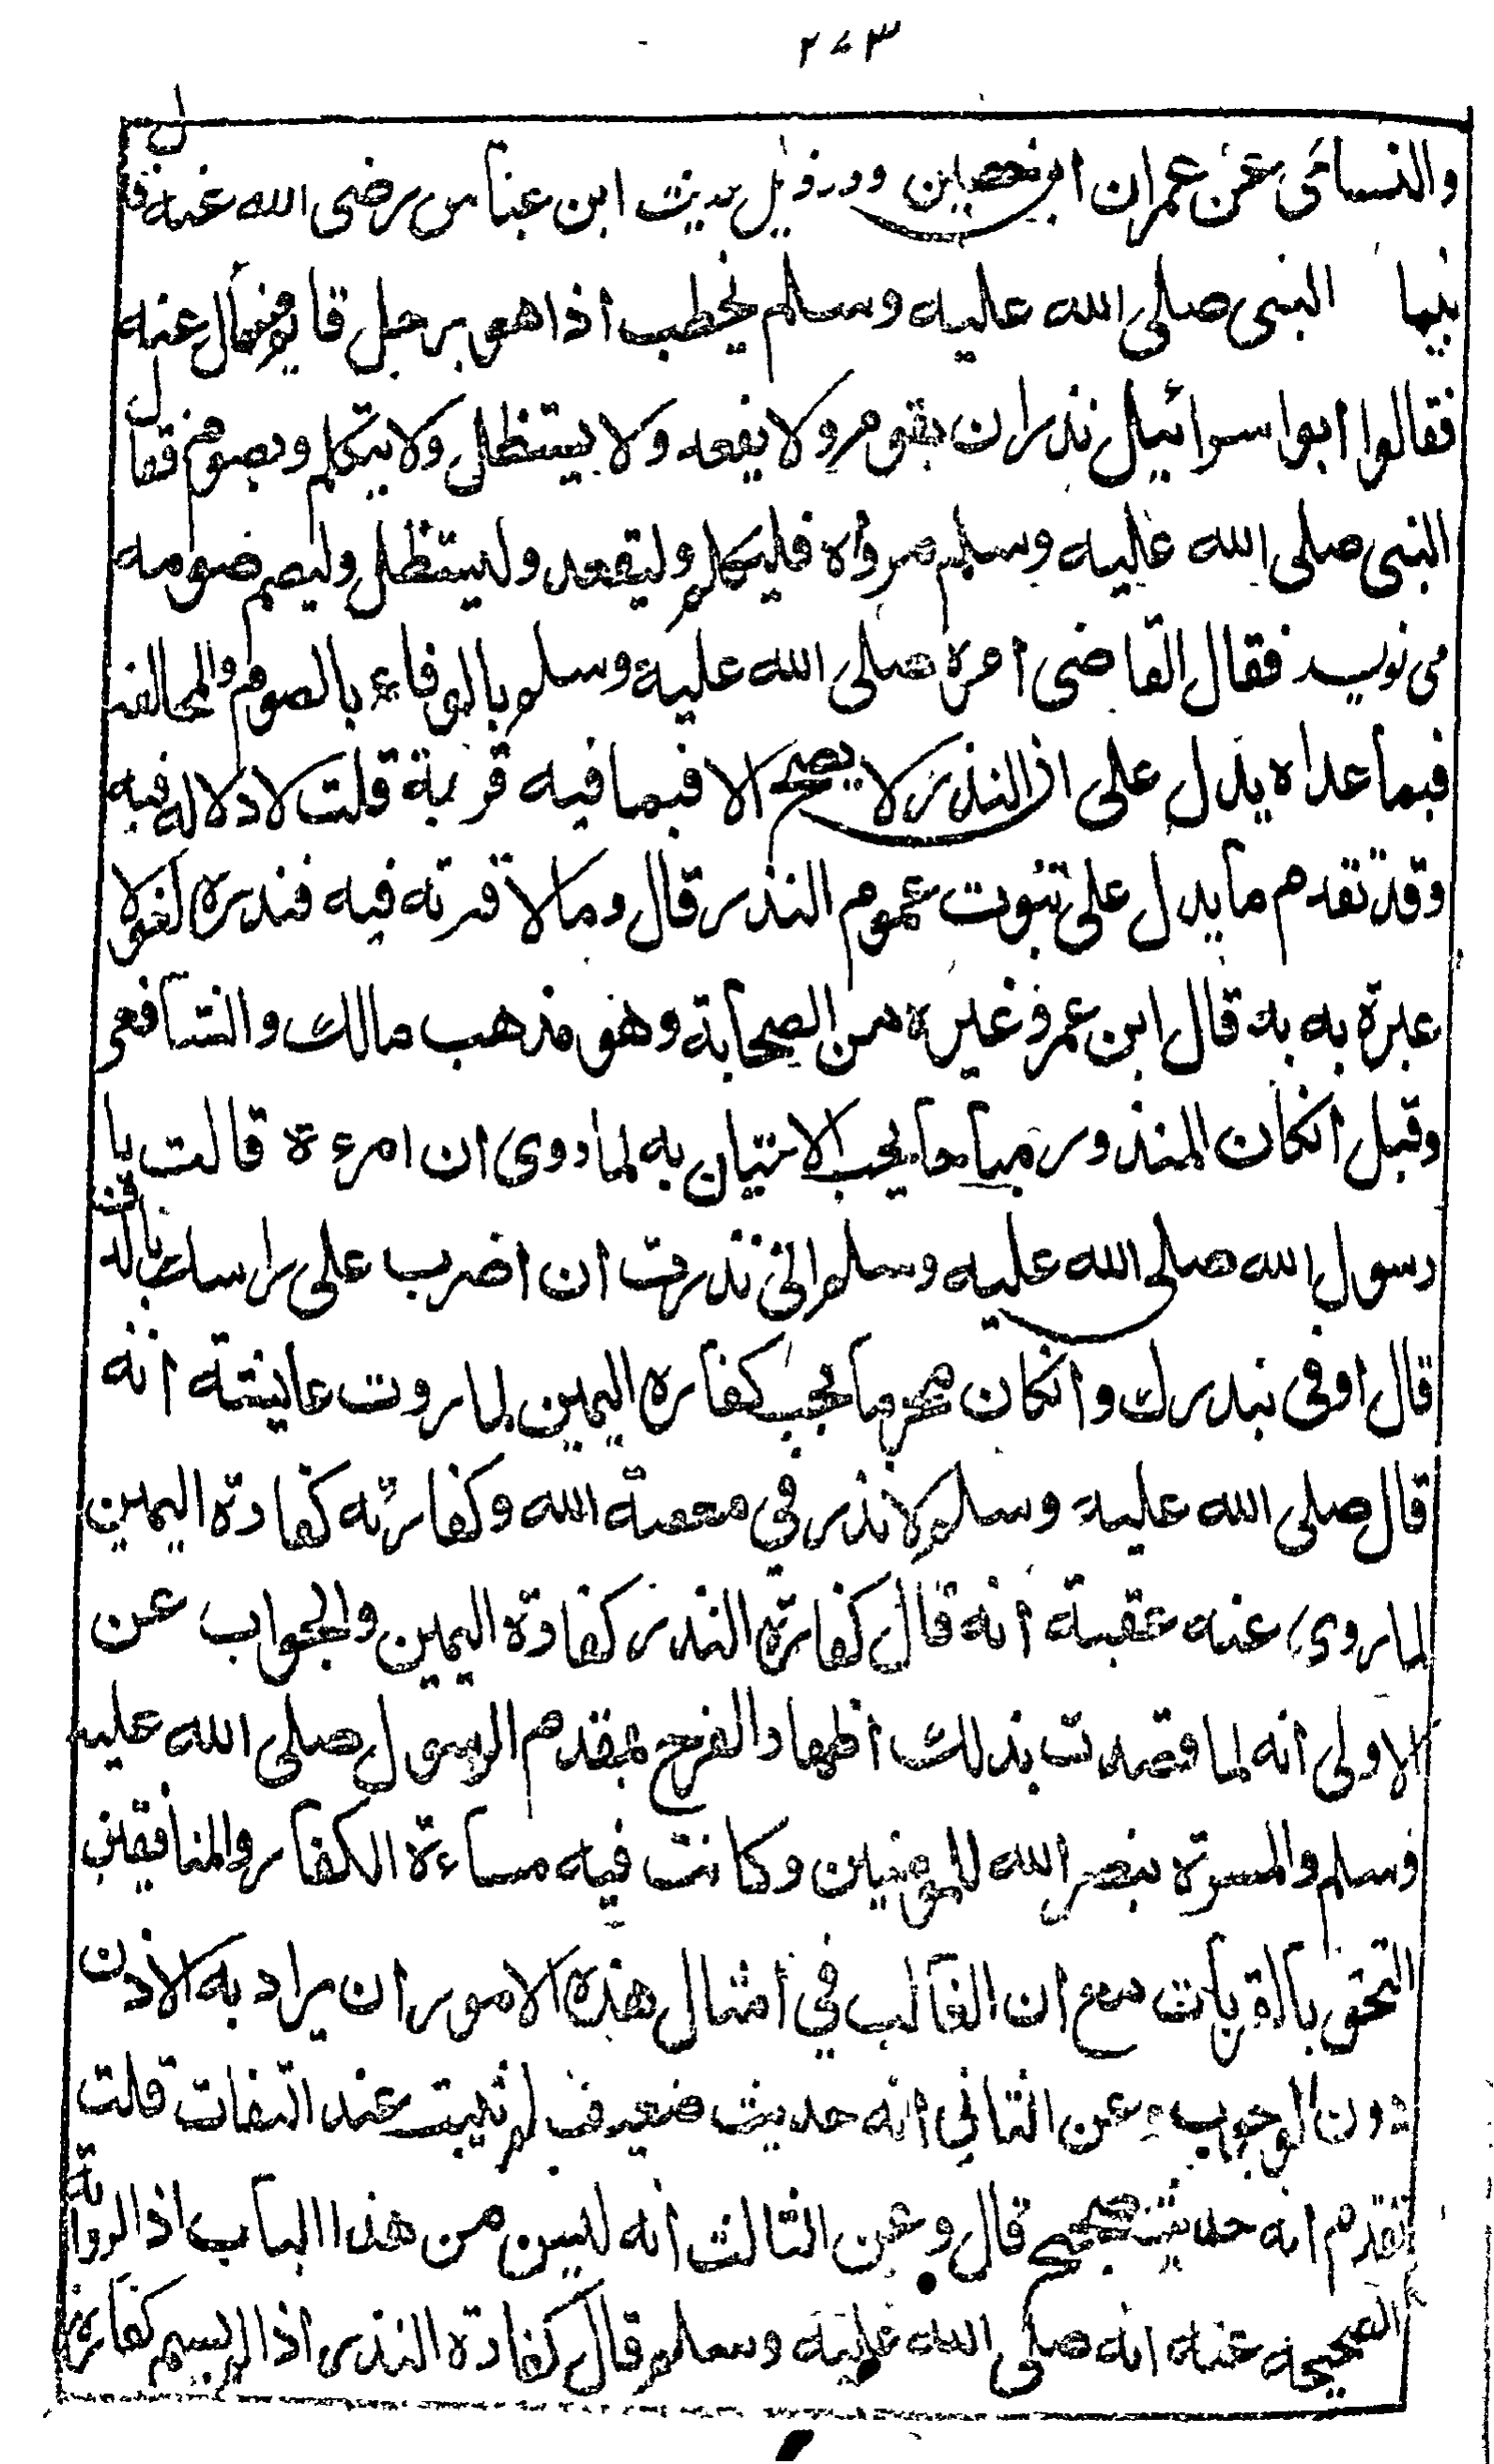 ٢٤٣
والنسائی عن عمران ابن حصين وورد ذيل حديث ابن عباس رضی الله عنه قال
بينما النبی صلی الله عليه وسلم يخطب اذا هو برجل قايم فسأل عنه
فقالوا ابوا سرائيل نذر ان يقوم ولا يقعد ولا يستظل ولا يتكلم ويصوم فقال
النبی صلی الله عليه وسلم مروه فليتكلم وليقعد وليستظل وليصم صومه
فقال القاضی امره صلی الله عليه وسلم بالوفاء بالصوم والمخالفة
فيما عداه يدل علی ان النذر لا يصح الا فيما فيه قربة قلت لا دلاله فيه
وقد تقدم ما يدل علی ثبوت عموم النذر قال وما لا قربه فيه فنذره لغو لا
عبرة به به قال ابن عمر وغيره من الصحابة وهو مذهب مالك والشافعی
وقيل انكان المنذور مباحا يجب الاتيان به لما روی ان امرءة قالت يا
رسول الله صلی الله عليه وسلم انی نذرت ان اضرب علی راسك بالدف
قال اوفی بنذرك وانكان محرما يجب كفاره اليمين لما روت عايشة انه
قال صلی الله عليه وسلم لا نذر فی معصة الله وكفارته كفارة اليمين
لما روی عنه عقبة انه قال كفارة النذر كفارة اليمين والجواب عن
الاولی انه لما قصدت بذلك اظهار الفرح بمقدم الرسول صلی الله عليه
وسلم والمسرة بنصر الله للمومنين وكانت فيه مساءة الكفار والمنافقين
التحق بالقربات مع ان الغالب فی امثال هذه الامور ان يراد به الاذن
دون الوجوب وعن الثانی انه حديث ضعيف لم يثبت عند الثقات قلت
تقدم انه حديث صحيح قال وعن الثالث انه ليس من هذا الباب اذا الرواية
الصحيحه عنه انه صلی الله عليه وسلم قال كفارة النذر اذا لم يسم كفارة